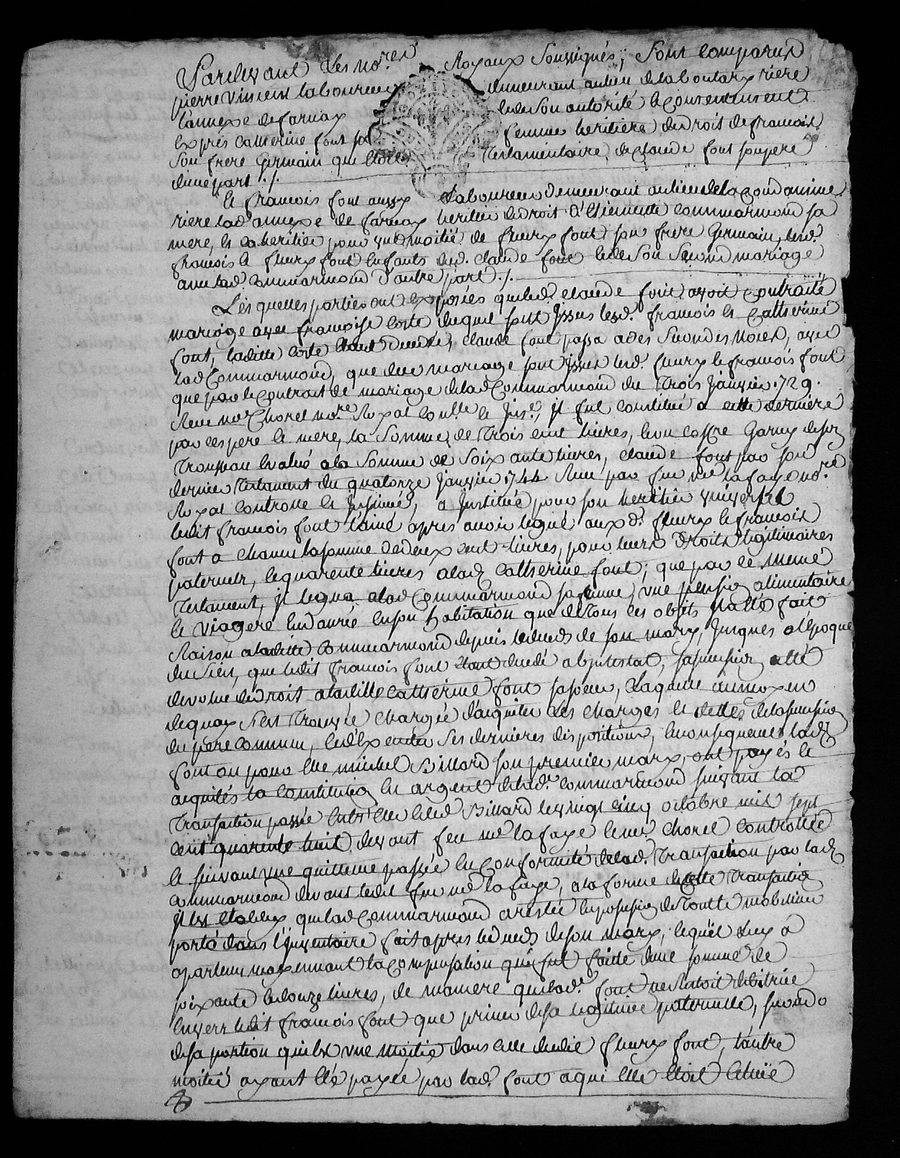 Pardevant Les no.res Royaux Soussignés, Sont Comparus
pierre Vincent Laboureur demeurant au lieu de la boutary riere
l'annexe de farnay de Son autorité & Consentement
Exprés Catherine font sa femme heritiere de Droit de francois
Son frere Germain que Testamentaire de claude font son pere
d'une part ./.
Et francois font aussy Laboureur demeurant au lieu de la Condamine
riere lad. annexe de farnay heritier de Droit d'Etiennete Commarmond sa
mere, & Coheritier pour une moitié de fleury font son frere Germain, lesd.
francois & fleury font Enfants dud. claude font & de Son Second mariage
avec lad. Commarmond d'autre part ./.
Lesquelles parties ont Exposées que led. claude font avoit Contracté
mariage avec françoise Coste duquel sont Issus lesd. francois & Catherine
font, laditte Coste Etant decedée, claude font passa a des Secondes noces, avec
lad. Commarmond, que du mariage sont Issus lesd. fleury & francois font
que par le Contrat de mariage de lad. Commarmond du Trois Janvier 1729.
Receu me. Chorel no.re Royal Con.lle & Jns.é, il fut Constitué a cette derniere
par ses pere & mere, la Somme de Trois cent livres, & un coffre Garny de son
Trousseau Evalué a la Somme de Soixante livres, claude font par son
dernier Testament du quatorze Janvier 1744 Receu par feu me. la faye no.re
Royal Controllé & Jnsinué, a Jnstitué pour son heritier universel
ledit francois font l'ainé apres avoir legué aux d. fleury & francois
font a chacun la somme de deux cent livres, pour leurs Droits legitimaires
paternels, & quarente livres a lad. Catherine font; que par le meme
Testament, il legua a lad. Commarmond sa femme, une pension alimentaire
& viagere Ensemble son habitation que de tous ces objets il a été fait
Raison a laditte Commarmond depuis le deceds de son mary, Jusques a l'epoque
du Sien, que ledit francois font Etant decedé abintestat, sa succession a été
devolue de Droit a laditte Catherine font sa soeur, laquelle au moyen
de quoy s'est Trouvée chargée d'aquiter les charges & dettes de la succession
du pere Commun, & d'Executer Ses dernieres dispositions, En consequence lad.
font ou pour Elle michel Billard son premier mary, ont payés &
acquités la Constitution En argent de lad. Commarmond suivant la
Transaction passée Entr'Elle & led. Billard le vingt cinq octobre mil sept
cent quarente huit devant feu me. la faye & me. Chorel Controllée
& suivant une quittance passée En Conformité de lad. Transaction par lad.
Commarmond devant ledit feu me. la faye, a la forme de cette Transaction
il est Etably que lad. Commarmond a restée En possession de Toutte mobiliere
porté dans l'Jnventaire fait apres le deceds de son mary, lequel Luy a
apartenu moyennant la Compensation qui en fut faitte d'une somme de
soixante & douze livres, de maniere que lad. font ne Restoit debitrice
Envers ledit francois font que primo de sa legitime paternelle, secundo
de sa portion qui Est une moitié dans celle dudit fleury font, l'autre
moitié ayant Eté payée par lad. font a qui elle Etoit Echüe